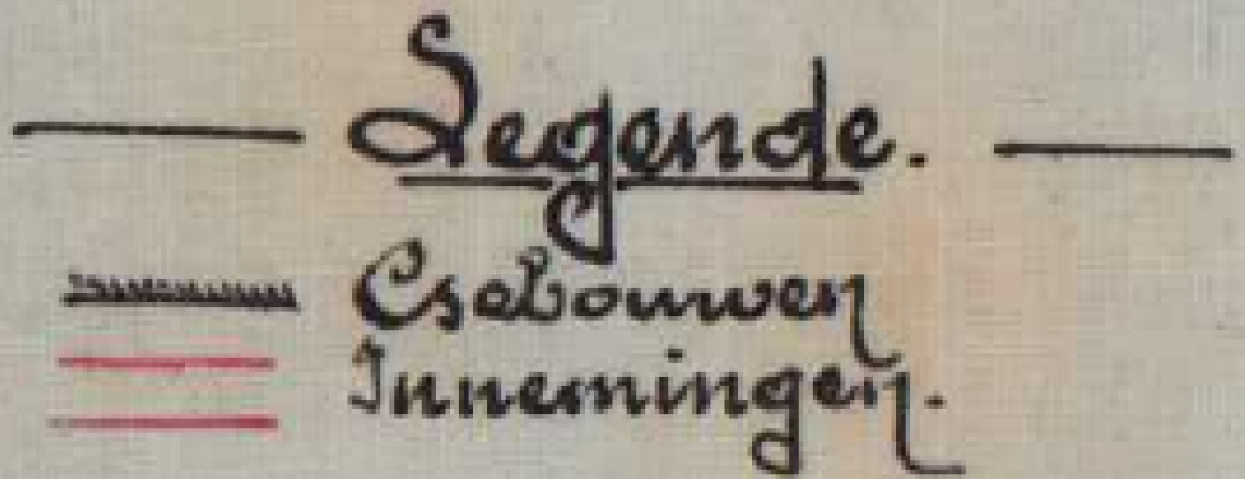 Legende.
Gebouwen
Innemingen.